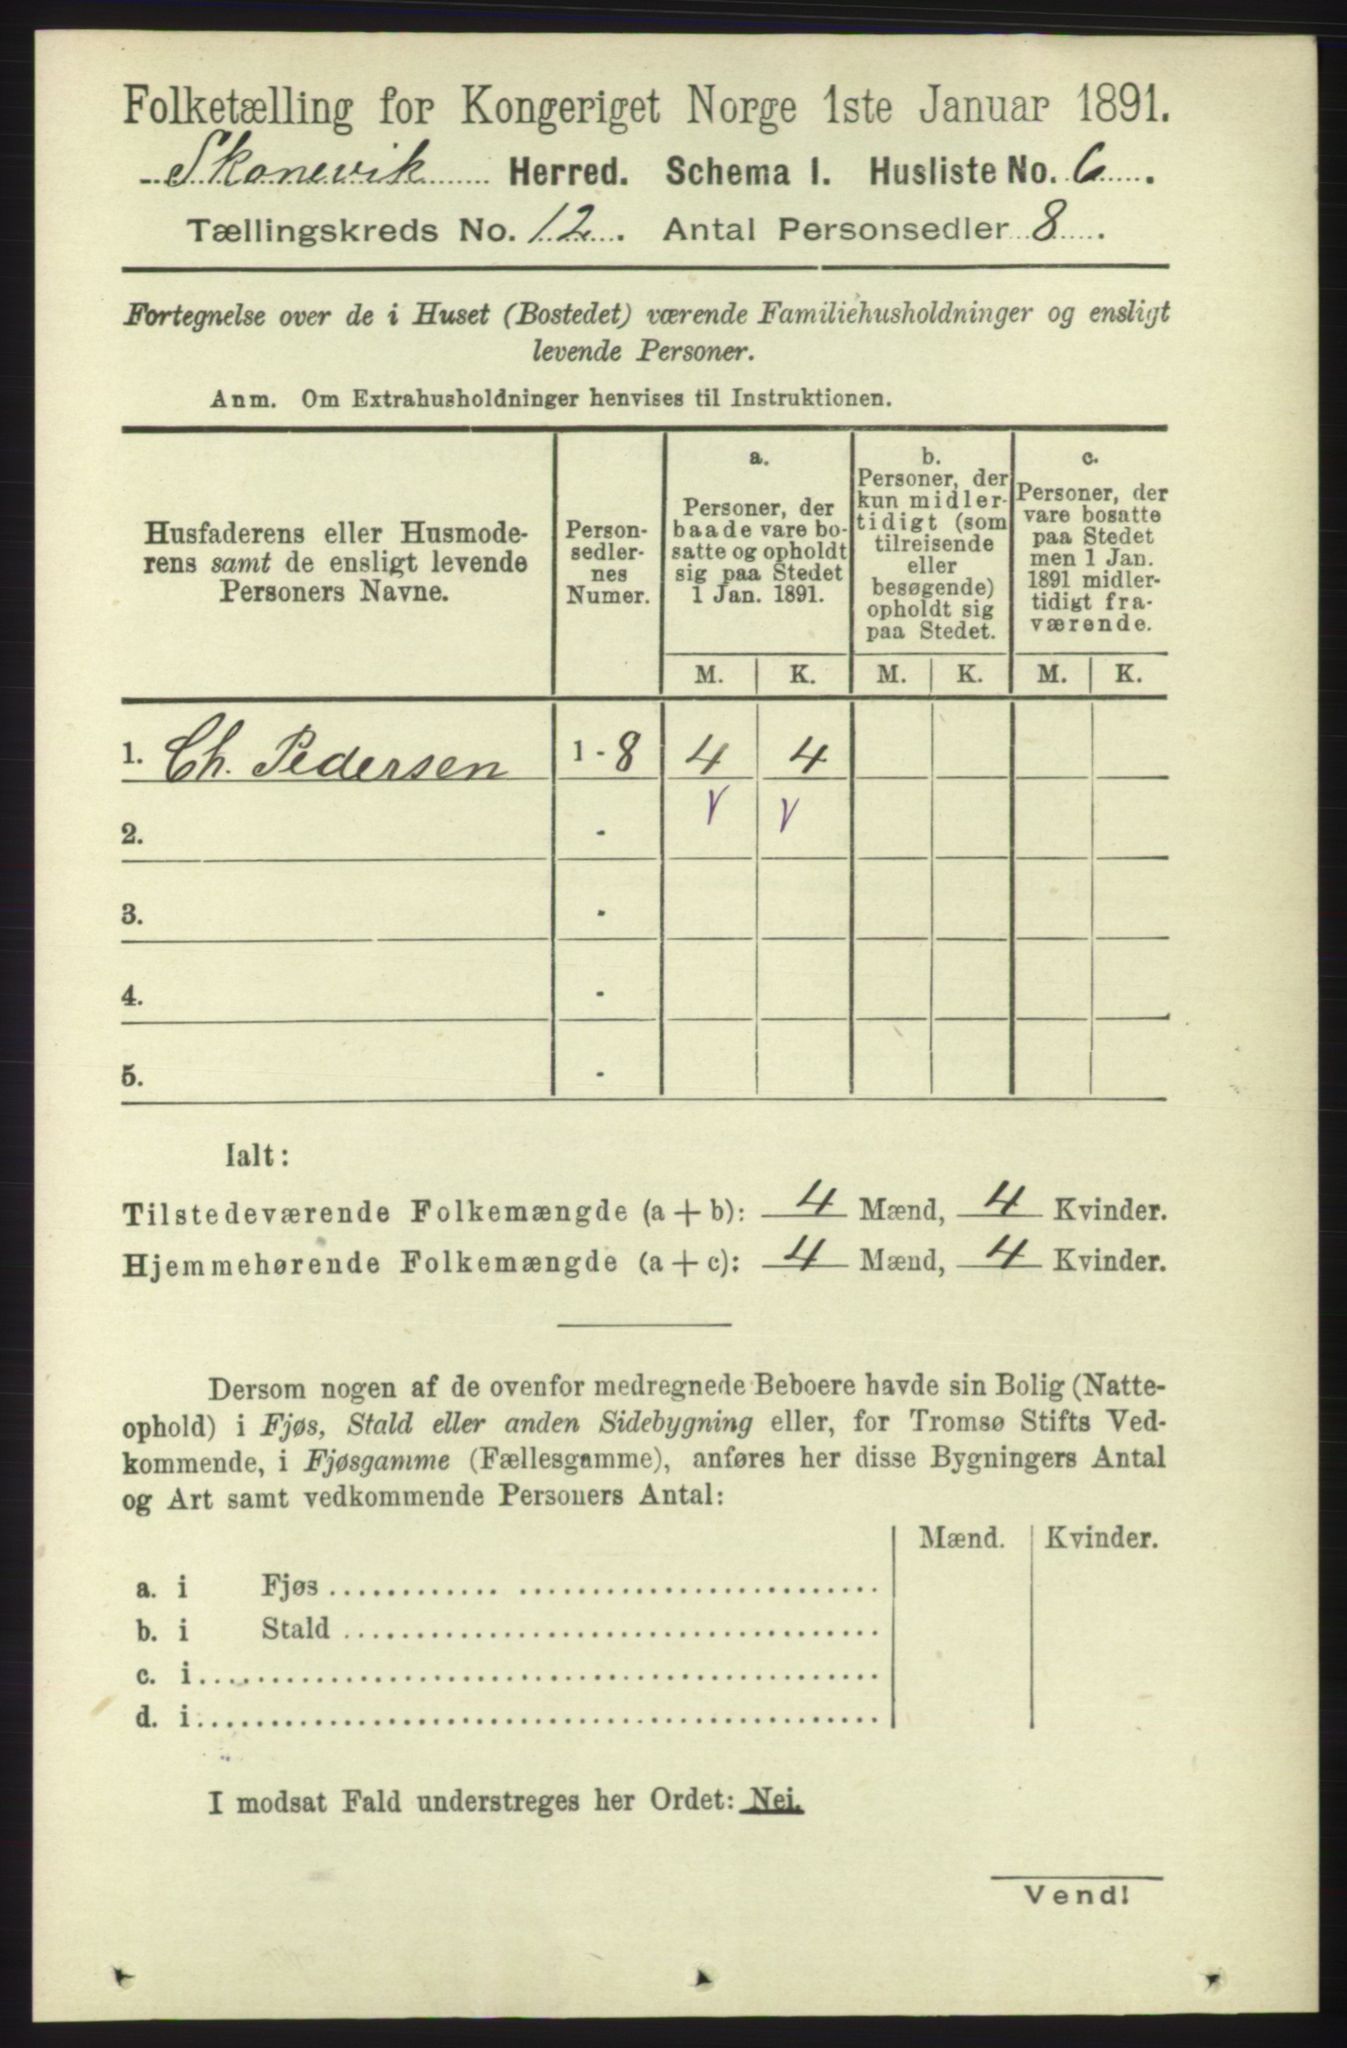 Folketælling for Kongeriget Norge 1ste Januar 1891.
Skonevik Herred. Schema 1. Husliste No. 6.
Tællingskreds No. 12. Antal Personsedler 8.
Fortegnelse over de i Huset (Bostedet) værende Familiehusholdninger og ensligt
levende Personer.
Anm. Om Extrahusholdninger henvises til Instruktionen.
Husfaderens eller Husmode-
rens samt de ensligt levende
Personers Navne.
Person-
sedler-
nes
Numer.
a.
Personer, der
baade vare bo-
satte og opholdt
sig paa Stedet
1 Jan. 1891.
b.
Personer, der
kun midler-
tidigt (som
tilreisende
eller
besøgende)
opholdt sig
paa Stedet.
c.
Personer, der
vare bosatte
paa Stedet
men 1 Jan.
1891 midler-
tidigt fra-
værende.
M. K. M. K. M. K.
1. Ch. Pedersen 1 - 8 4 4
2. -
3. -
4. -
5. -
Ialt:
Tilstedeværende Folkemængde (a + b): 4 Mænd, 4 Kvinder.
Hjemmehørende Folkemængde (a + c): 4 Mænd, 4 Kvinder.
Dersom nogen af de ovenfor medregnede Beboere havde sin Bolig (Natte-
ophold) i Fjøs, Stald eller anden Sidebygning eller, for Tromsø Stifts Ved-
kommende, i Fjøsgamme (Fællesgamme), anføres her disse Bygningers Antal
og Art samt vedkommende Personers Antal:
Mænd. Kvinder.
a. i Fjøs
b. i Stald
c. i
d. i
I modsat Fald understreges her Ordet: Nei.
Vend!